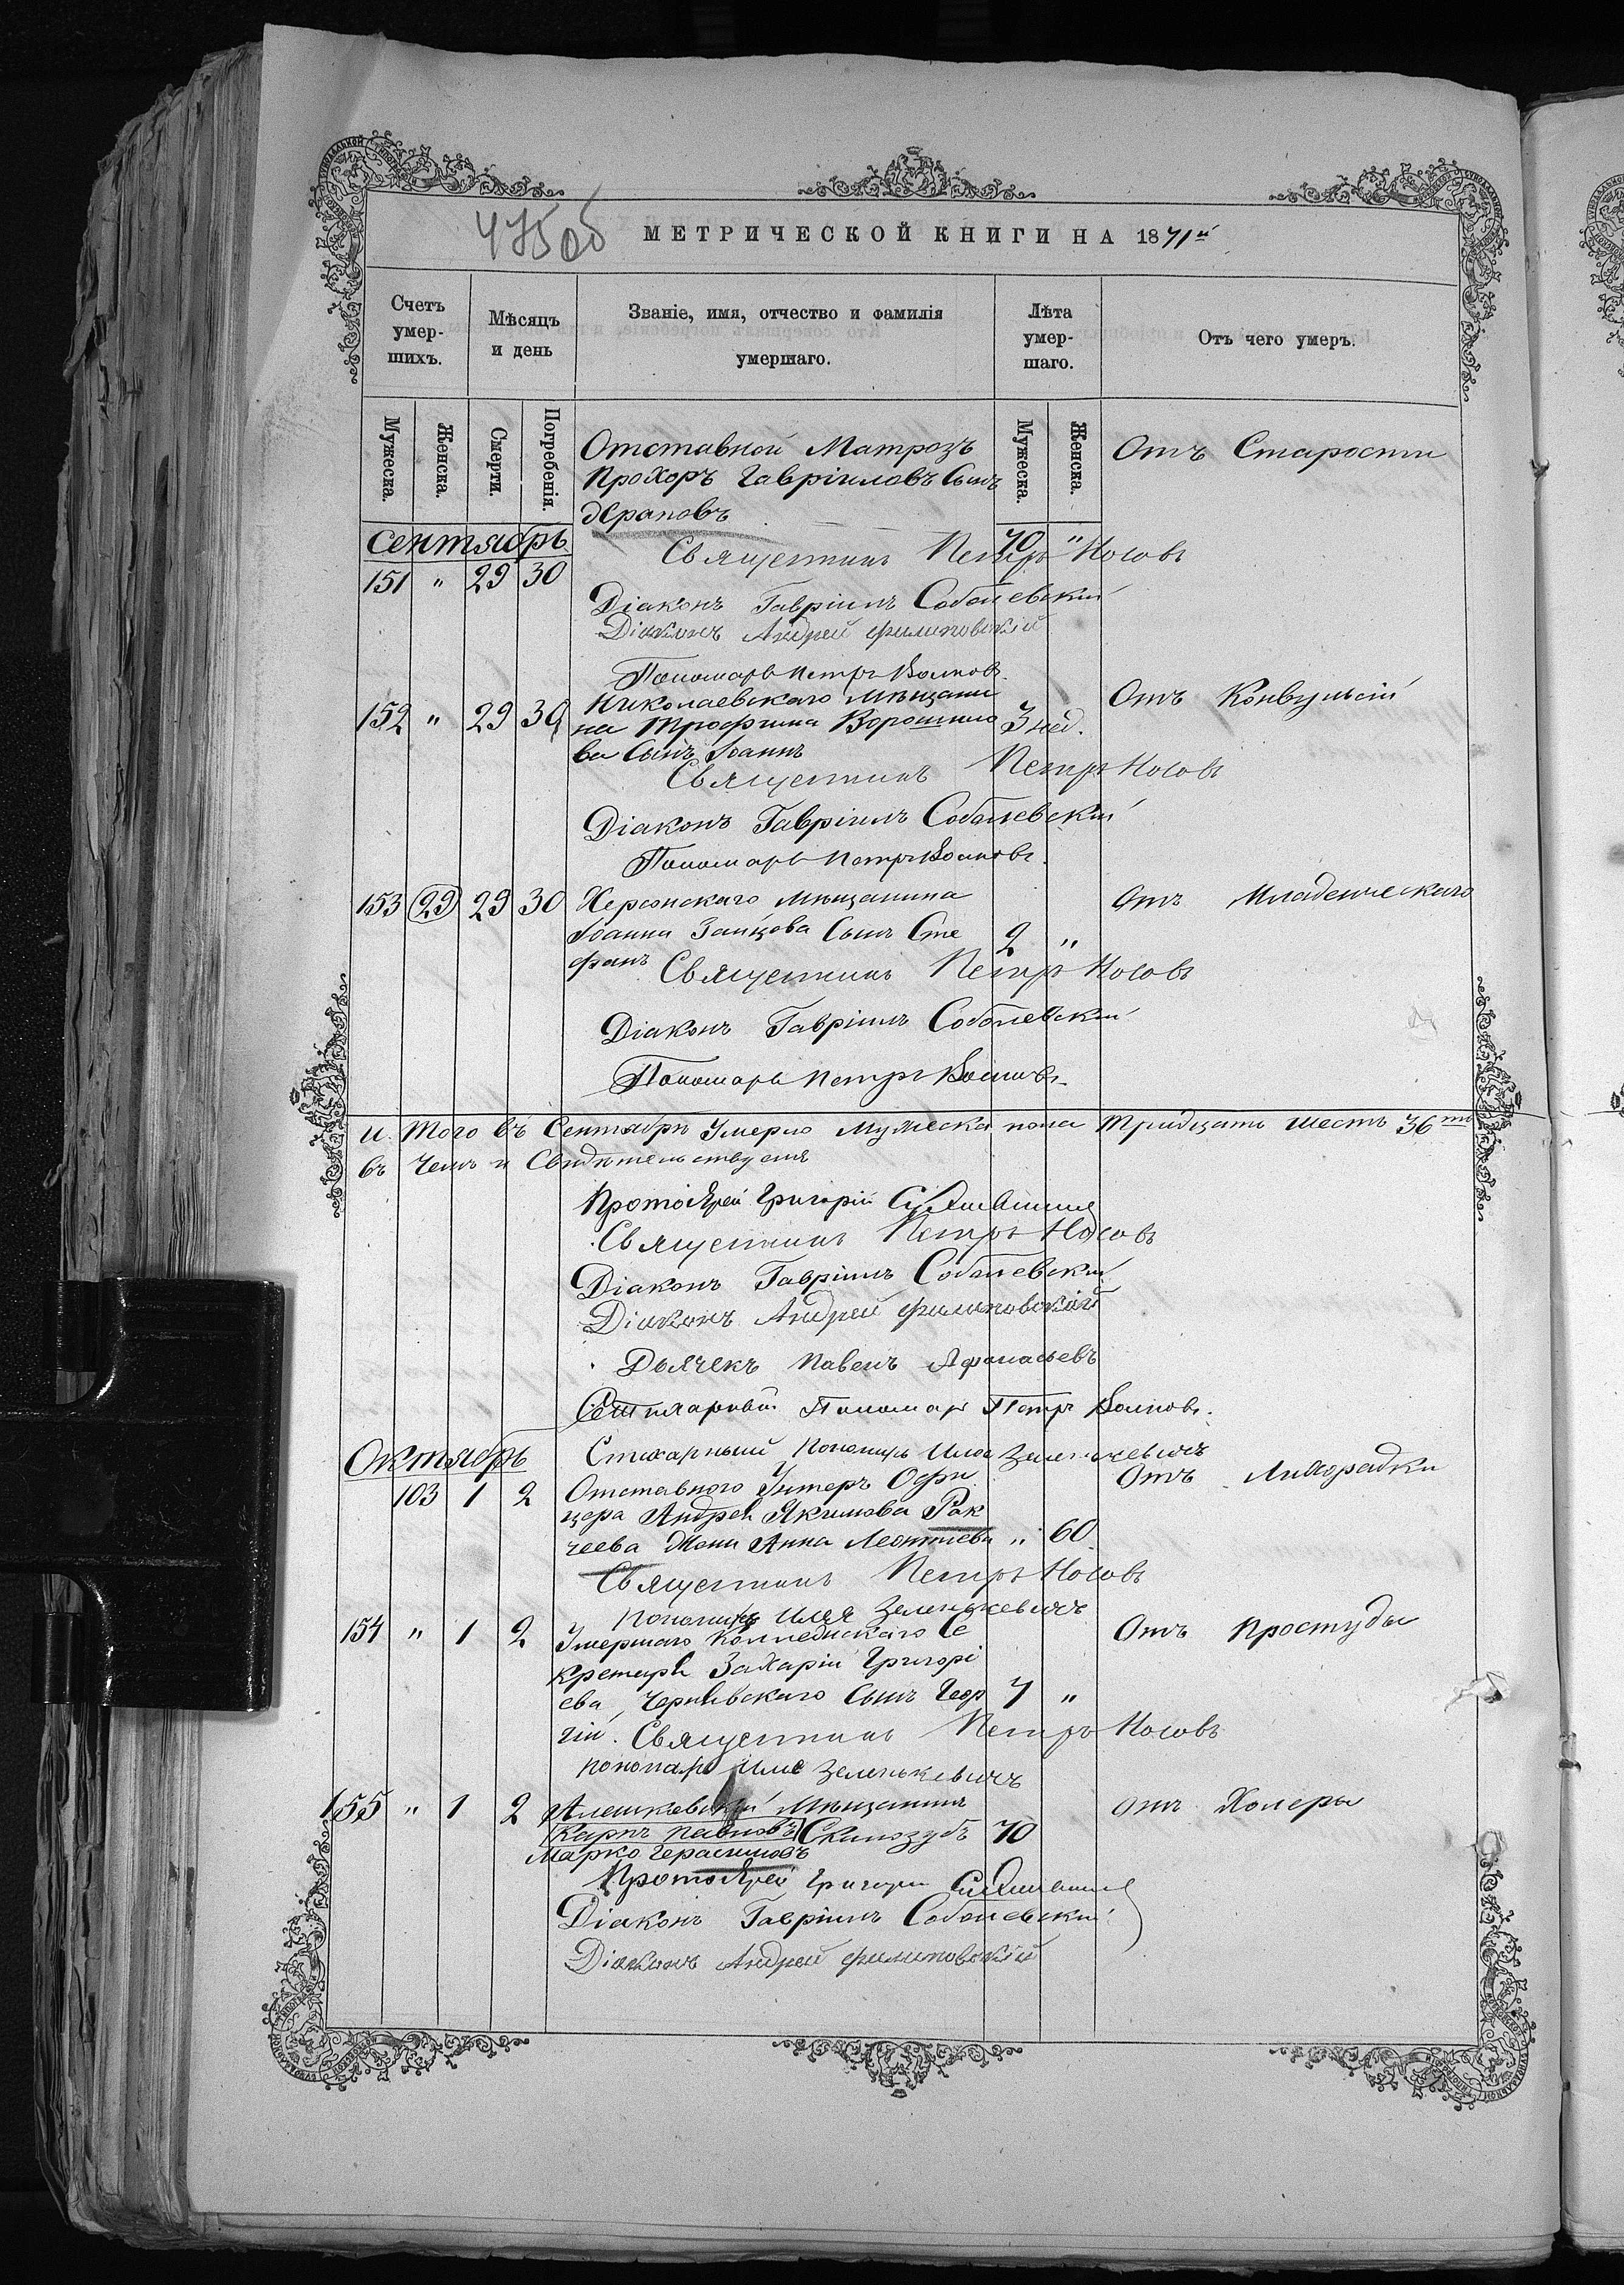 475 об
МЕТРИЧЕСКОЙ КНИГИ НА 1871й
Счетъ умер-шихъ.
Мѣсяцъ и день
Званіе, имя, отчество и фамилія умершаго.
Лѣта умер-шаго.
Отъ чего умеръ.
Мужеска. Женска. Смерти. Погребенія. Мужеска. Женска.
Отставной Матрозъ Отъ Старости
Прохоръ Гавріиловъ Сынъ
Сентябрь 70 "
Священникъ Петръ Носовъ
151 " 29 30
Діаконъ Гавріилъ Соболевскій
Діаконъ Андрей Филиповскій
Пономарь Петръ Волковъ
Николаевскаго Мѣщани Отъ Конвульсій
152 " 29 30 на Трофима Ворошило 3 нед.
ва Сынъ Іоаннъ
Священникъ Петръ Носовъ
Діаконъ Гавріилъ Соболевскій
Пономарь Петръ Волковъ.
153 29 29 30 Херсонскаго Мѣщанина Отъ Младенческаго
Іоанна Заицова Сынъ Сте 2 "
фанъ
Священникъ Петръ Носовъ
Діаконъ Гавріилъ Соболевскій
Пономарь Петръ Волковъ
И того въ Сентябрѣ Умерло Мужеска пола Тридцать шесть 36ть
въ Чемъ и Свидѣтельствуемъ
Протоіерей Григорій
Священникъ Петръ Носовъ
Діаконъ Гавріилъ Соболевскій
Діаконъ Андрей Филиповскій
Дьячекъ Павелъ Афанасьевъ
Пономарь Петръ Волковъ.
Стихарный Пономарь Илья Зеленькевичъ
Октябрь
103 1 2 Отставного Унтеръ Офи Отъ Лихорадки
цера Андрея Якимова Рак
чеева Жена Анна Леонтіева " 60
Священникъ Петръ Носовъ
Пономарь Илья Зеленькевичъ
154 " 1 2 Умершаго Коллежскаго Се Отъ Простуды
кретаря Захарія Григорі
ева Чернявскаго Сынъ Геор 7 "
гій. Священникъ Петръ Носовъ
Пономарь Илья Зеленькевичъ
155 " 1 2 Алешковскій Мѣщанинъ Отъ Холеры
Карпъ Павловъ Скинозубъ 70
Марко Герасимовъ
Протоіерей Григорій
Діаконъ Гавріилъ Соболевскій
Діаконъ Андрей Филиповскій